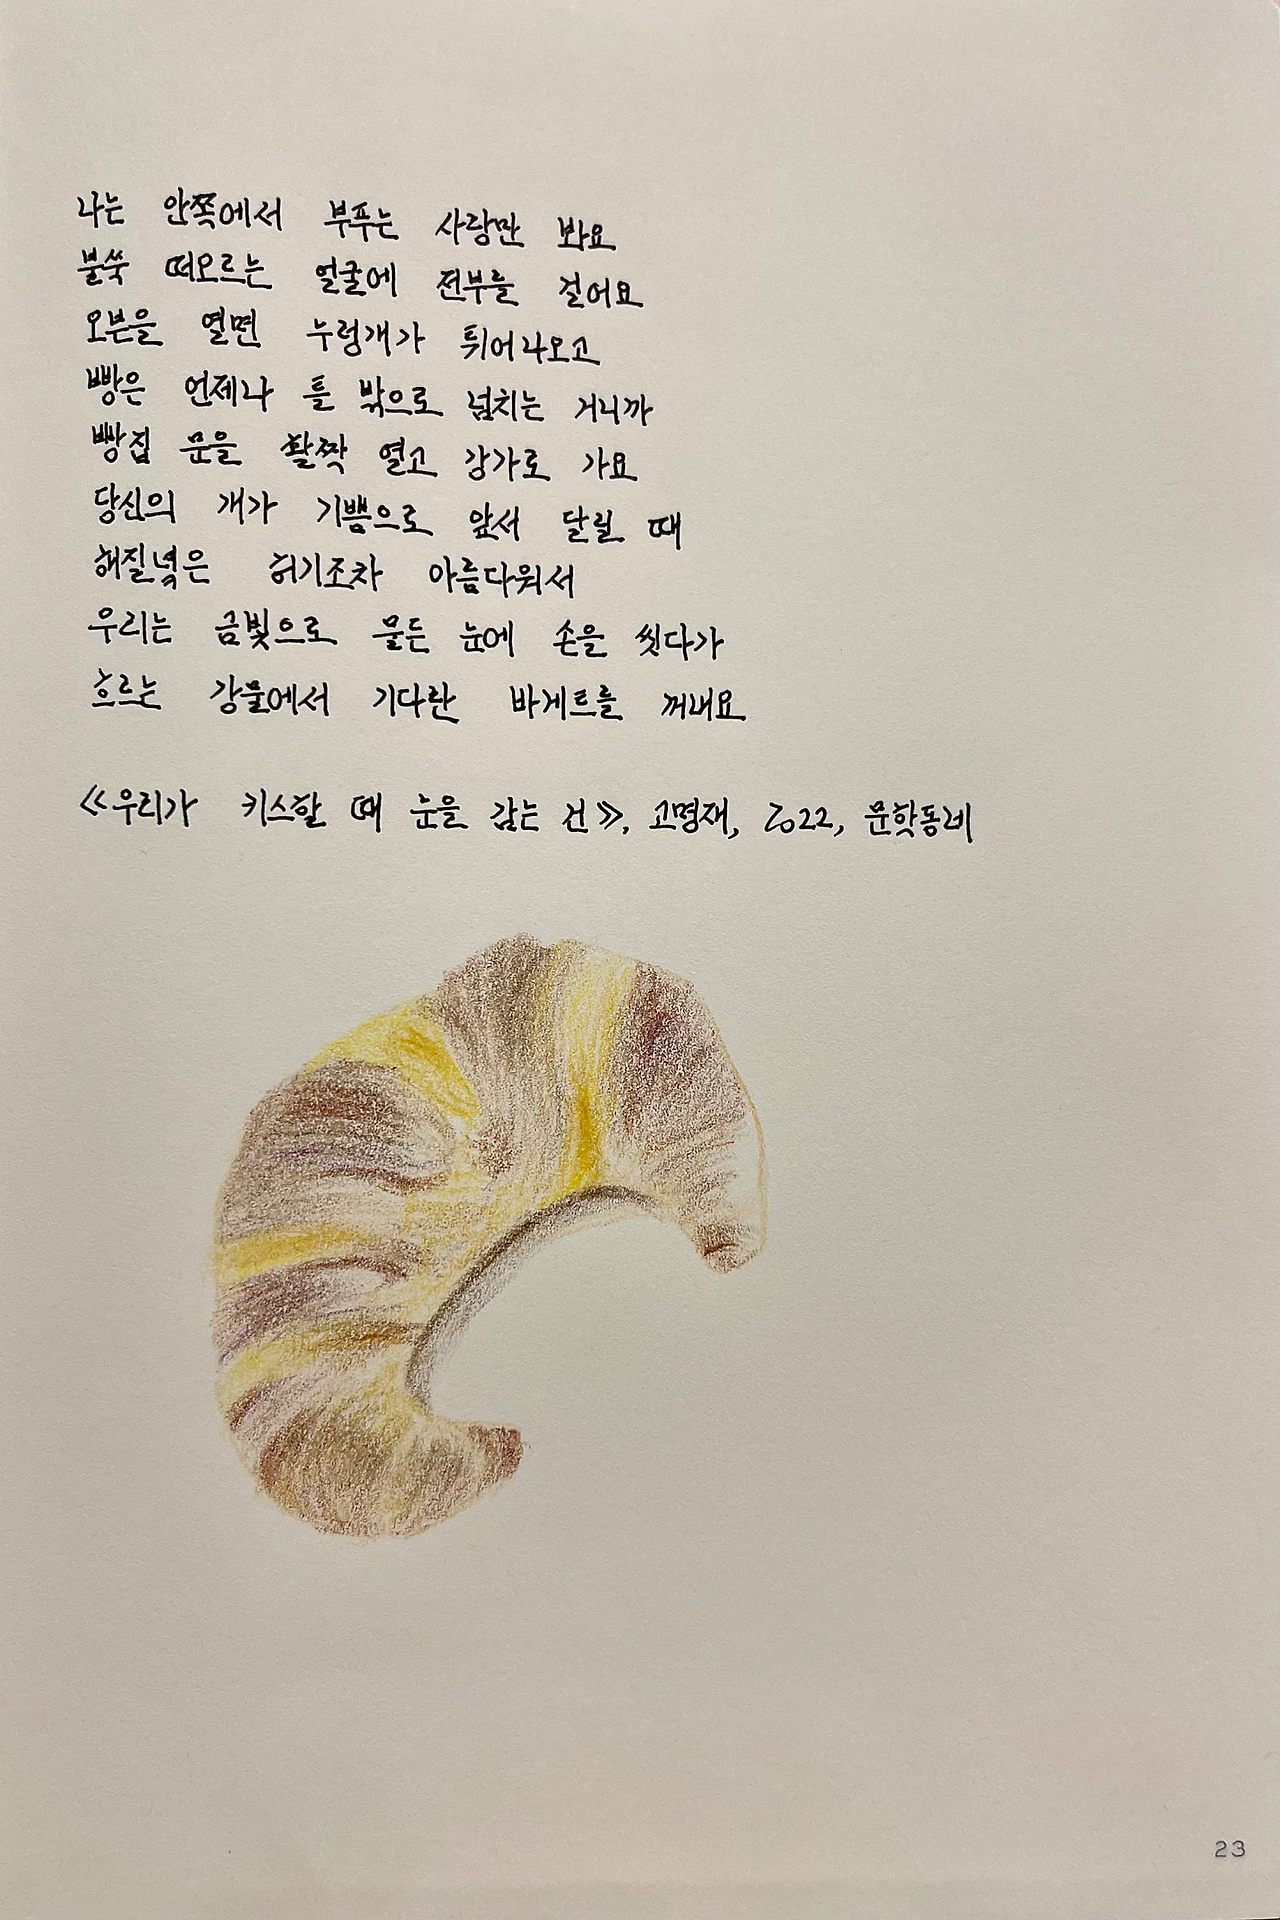 나는 안쪽에서 부푸는 사랑만 봐요
불쑥 떠오르는 얼굴에 전부를 걸어요
오븐을 열면 누렁개가 튀어나오고
빵은 언제나 틀 밖으로 넘치는 거니까
빵집 문을 활짝 열고 강가로 가요
당신의 개가 기쁨으로 앞서 달릴 때
해질녘은 허기조차 아름다워서
우리는 금빛으로 물든 눈에 손을 씻다가
흐르는 강물에서 기다란 바게트를 꺼내요
《우리가 키스할 때 눈을 감는 건》, 고명재, 2022, 문학동네
23